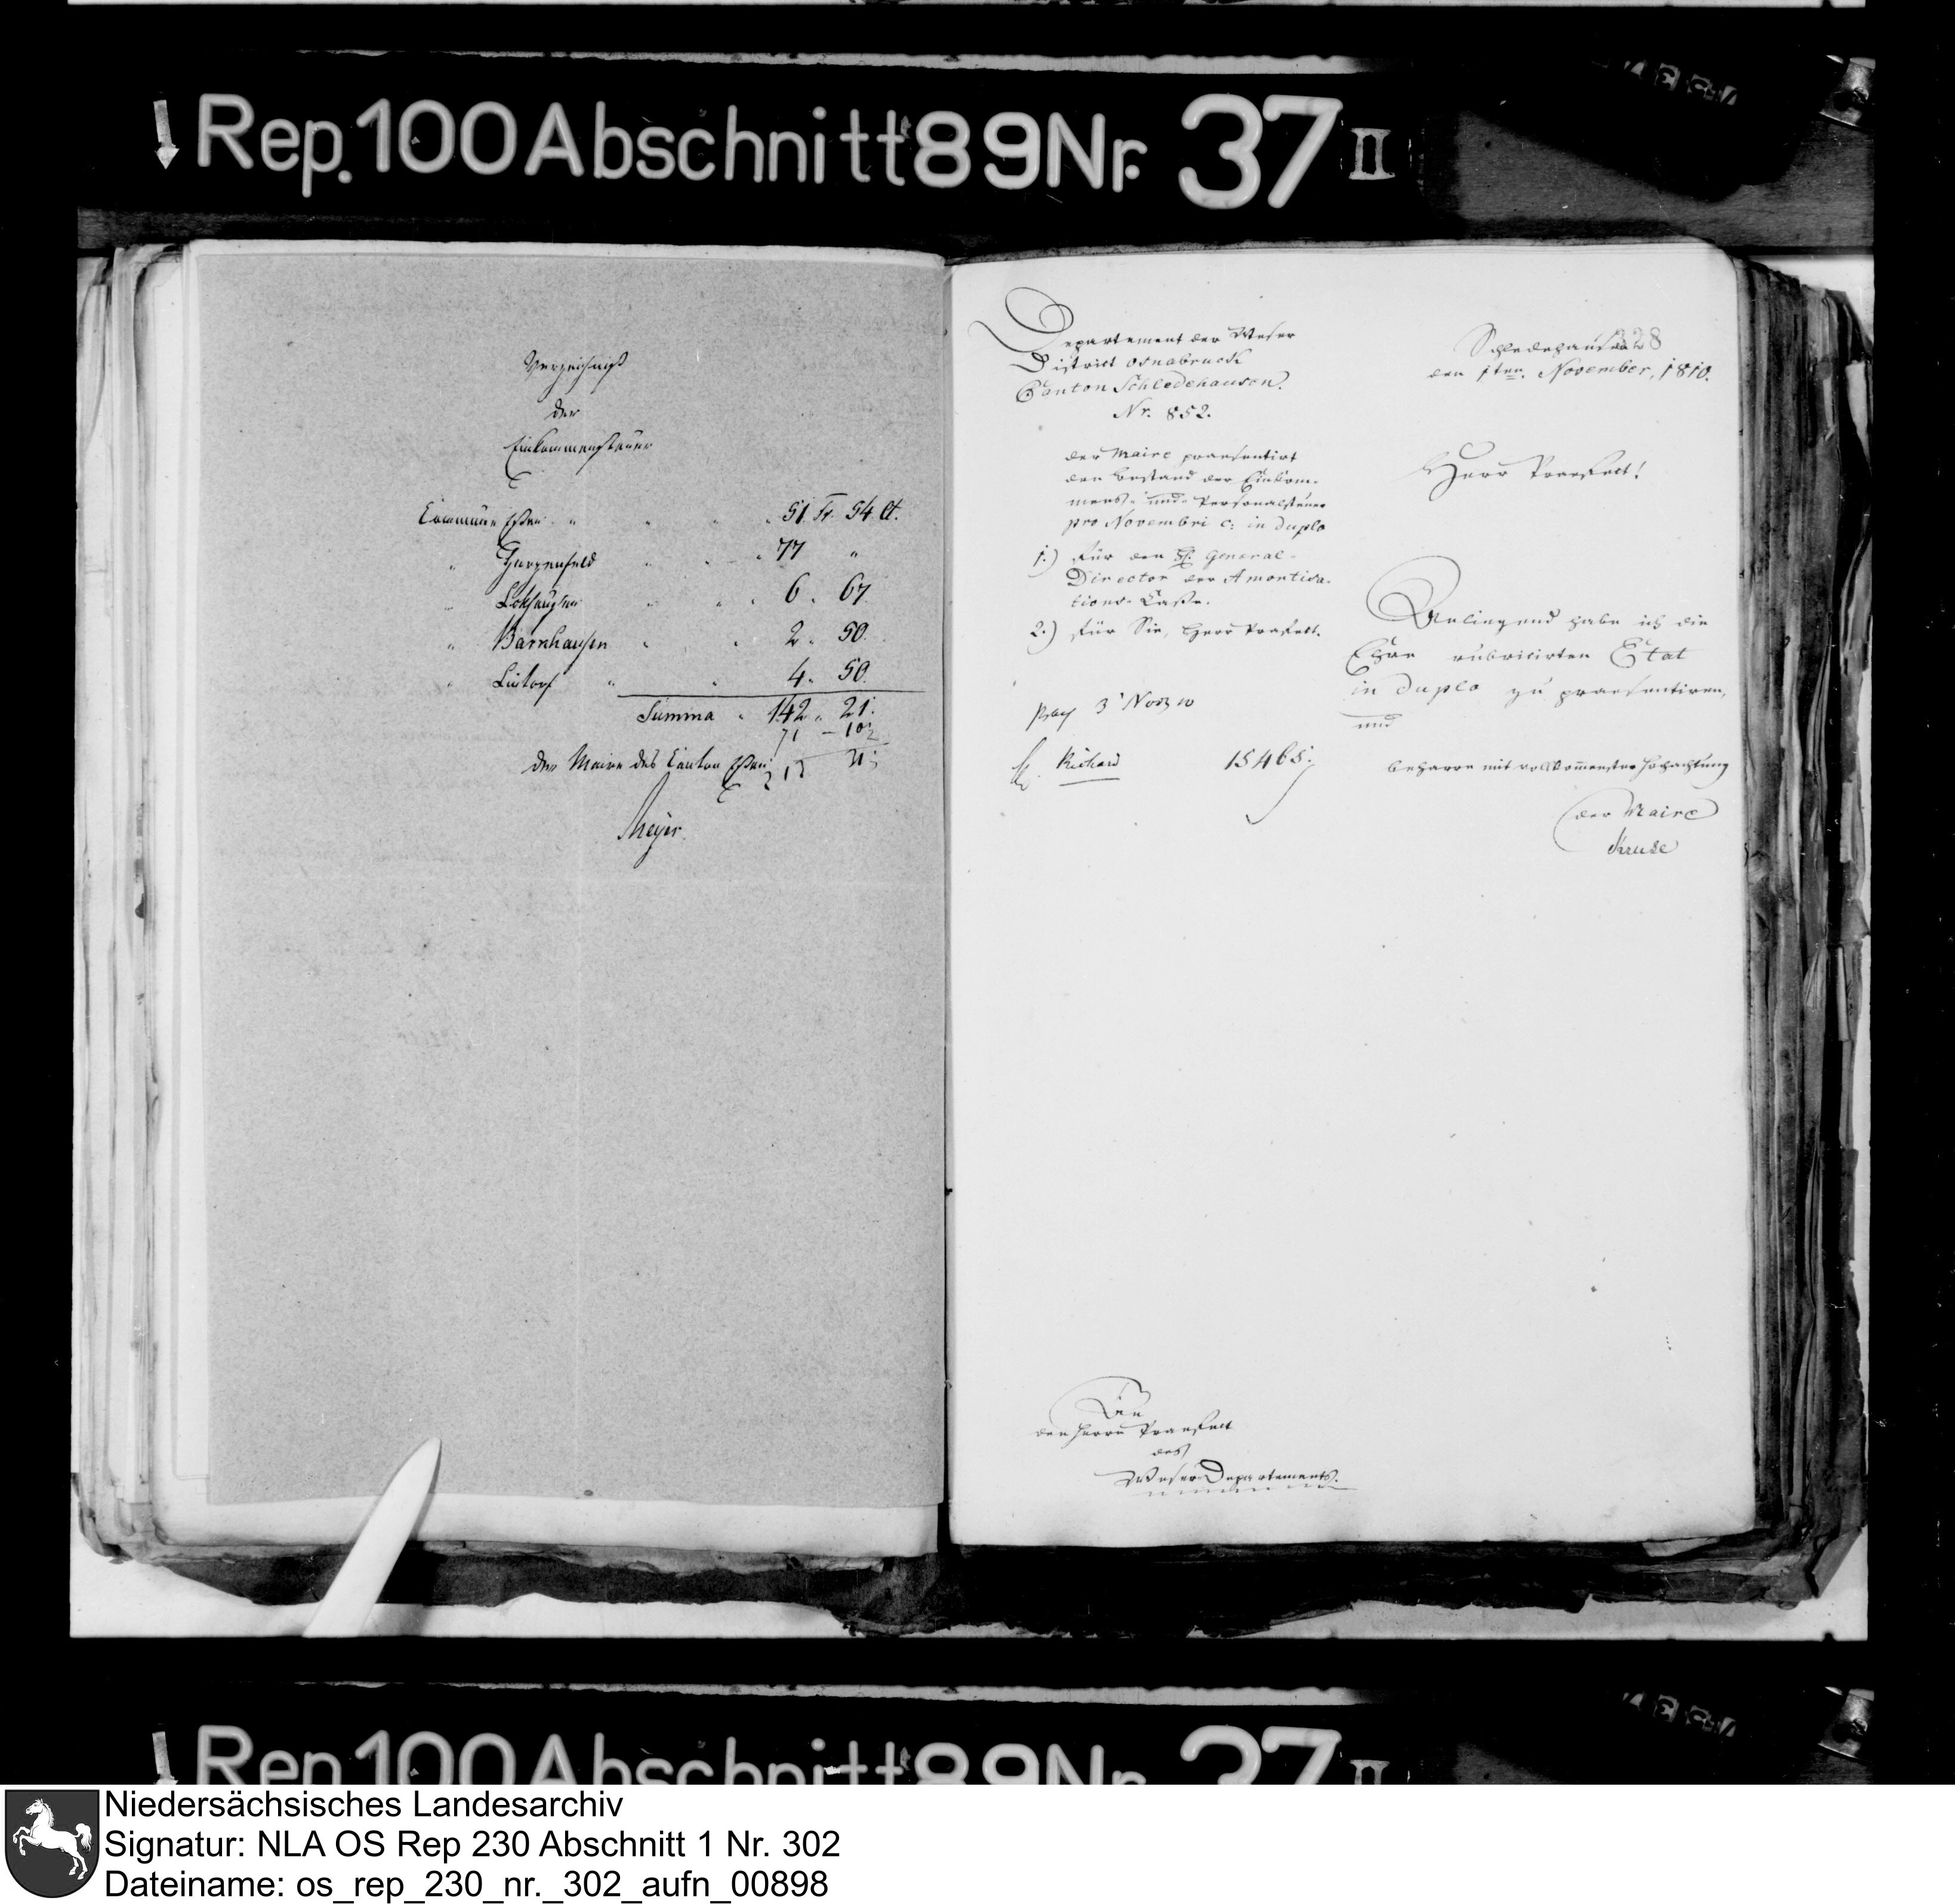 Rep. 100 Abschnitt 89 Nr. 37 II
Verzeichniß
der
Einkommensteuer
Commune Eßen " " " 51. Fr. 54 Ct.
" Harpenfeld " " 77 "
" Lockhausen " " 6. 67.
" Barnhausen " " 2. 50.
" Lintorf " " 4. 50.
Summa " 142. 21.
71 — 10½
Der Maire des Canton Eßen
Meyer.
Departement der Weser
District Osnabruck
Canton Schledehausen.
Nr. 852.
der Maire praesentirt
den Bestand der Einkom-
mens- und Personalsteuer
pro Novembri c: in duplo
1.) für den H. General-
Director der Amortisa-
tions-Caße.
2.) für Sie, Herr Präfect.
3 Nov 10
Richard 15465.
328
Schledehausen
den 1ten November, 1810.
Herr Praefect!
Anliegend habe ich die
Ehre rubricirten Etat
in duplo zu praesentiren,
und
beharre mit vollkom̄enster Hochachtung
der Maire
Kruse
An
den Herrn Praefect
des
Weser Departements.
Rep. 100 Abschnitt 89 Nr. 37 II
Niedersächsisches Landesarchiv
Signatur: NLA OS Rep 230 Abschnitt 1 Nr. 302
Dateiname: os_rep_230_nr._302_aufn_00898